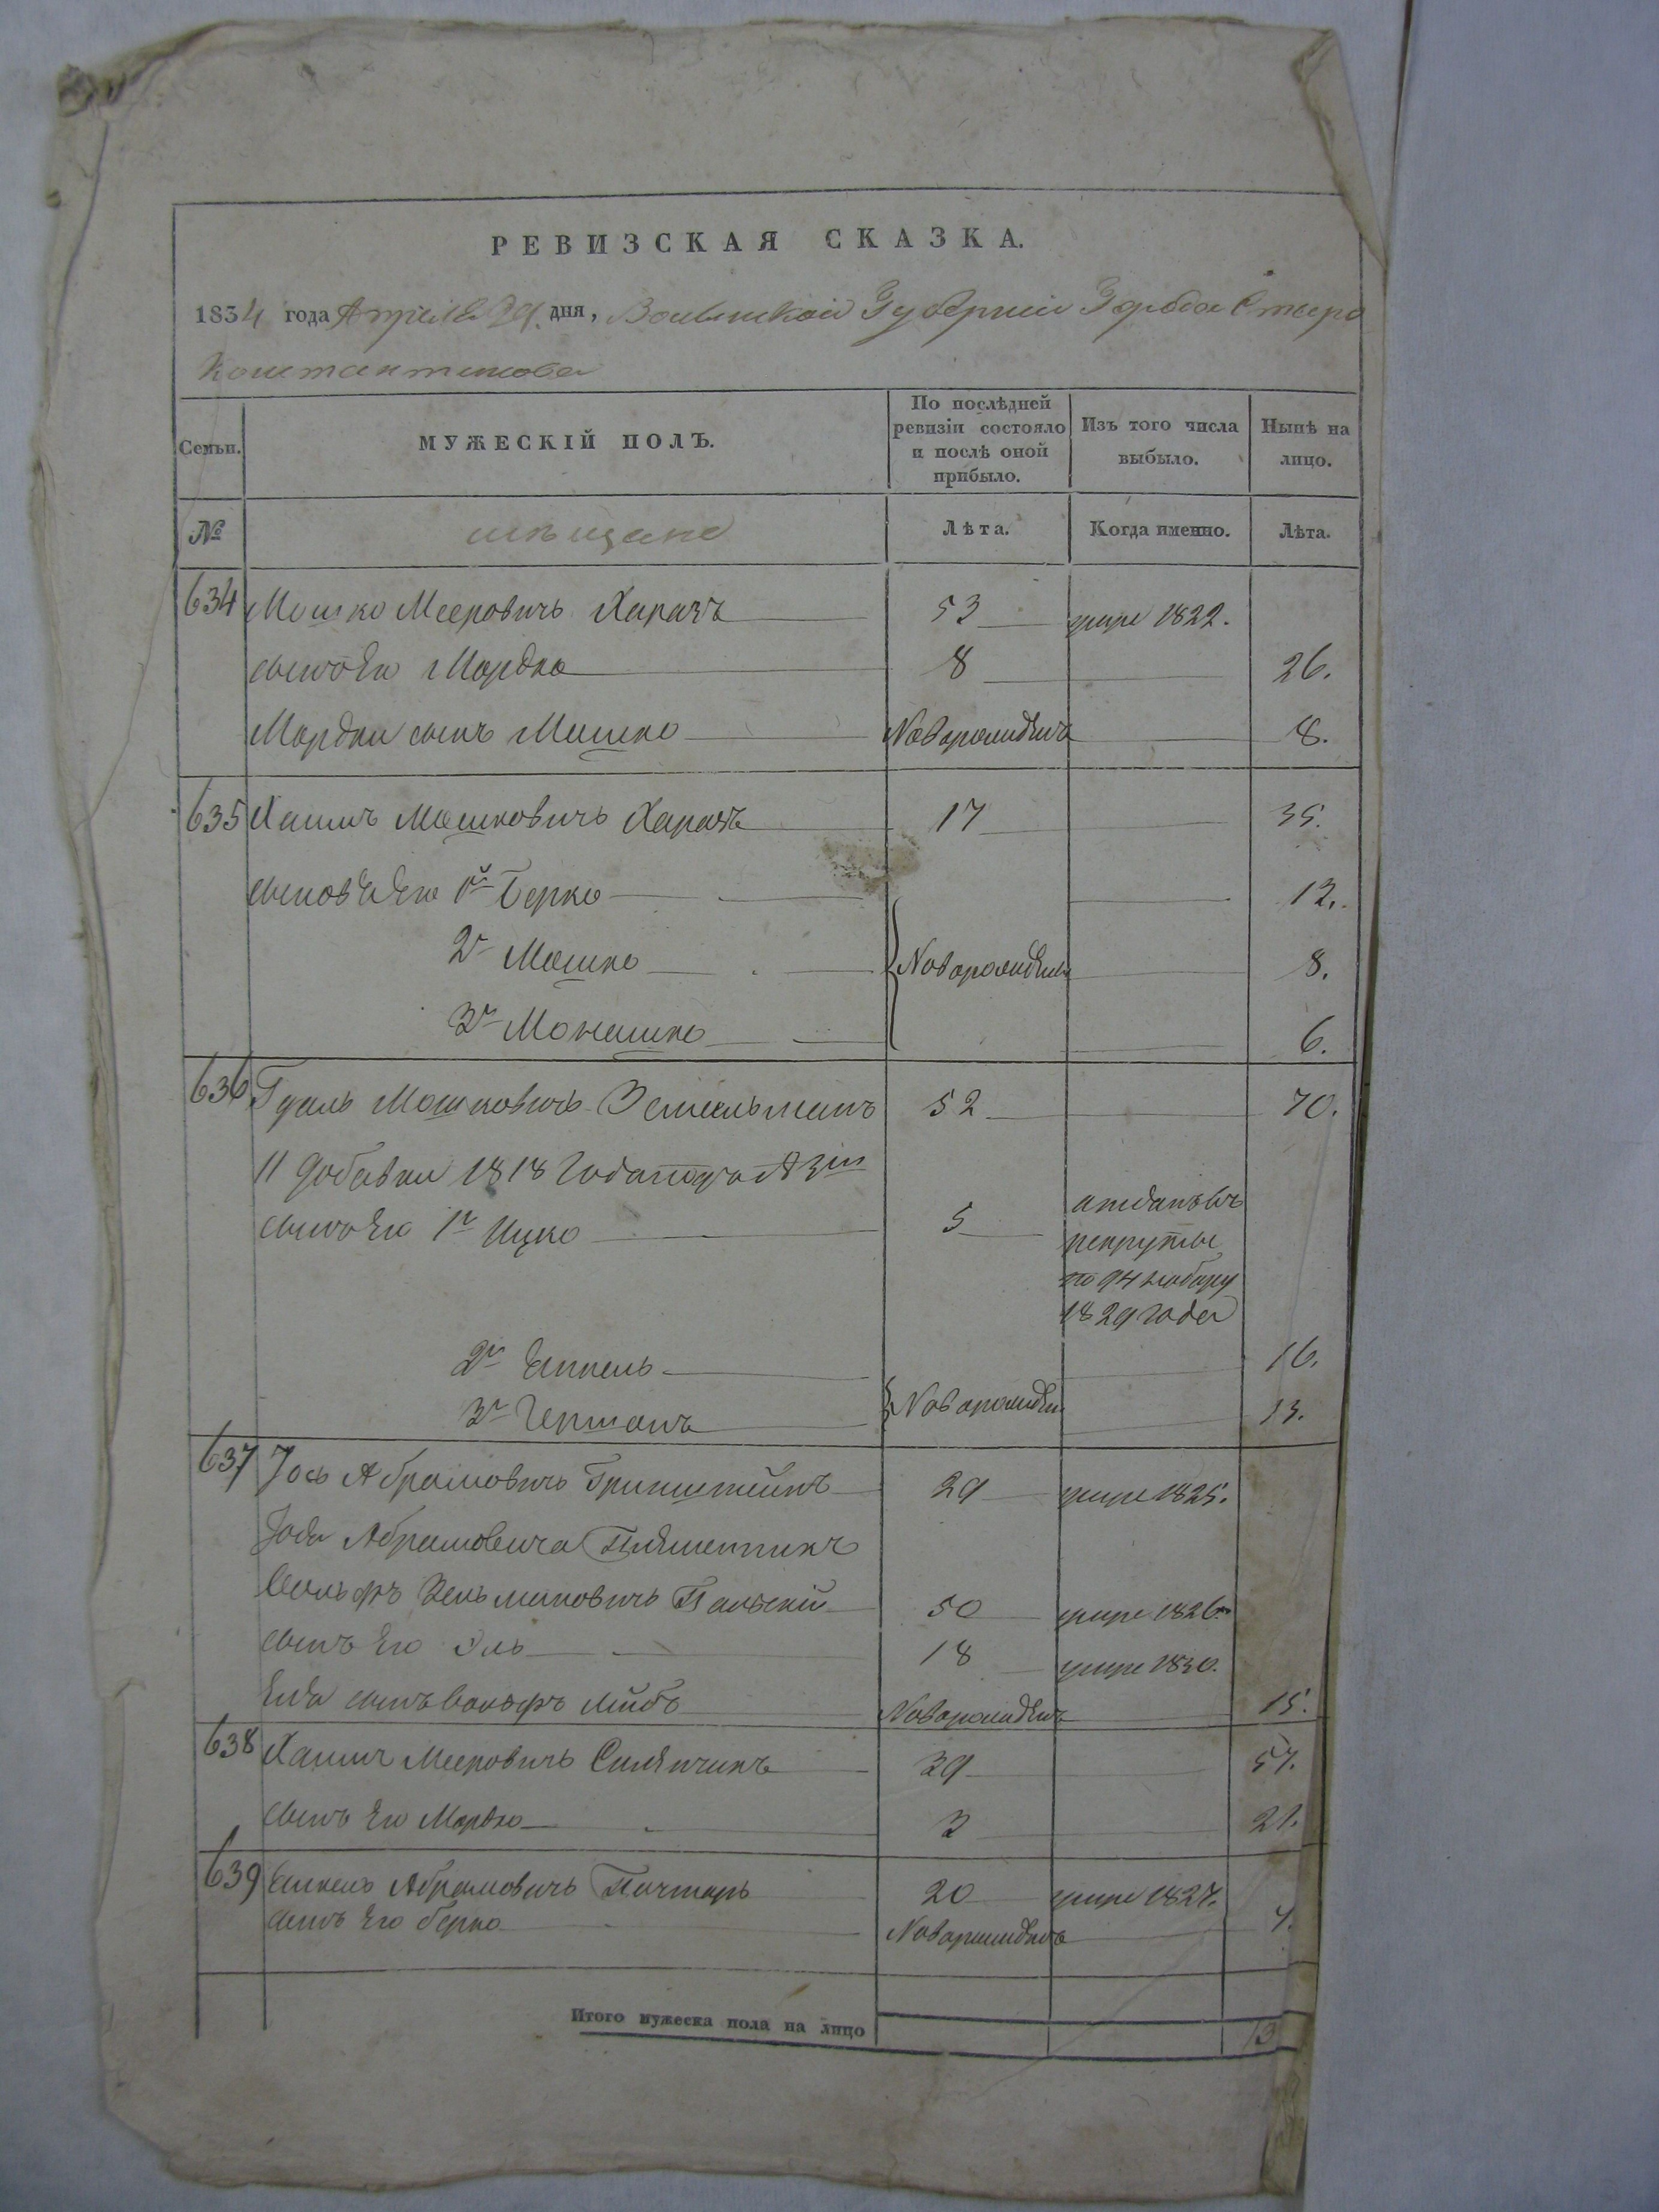 РЕВИЗСКАЯ СКАЗКА.
1834 года Апреля 29. дня, Волынской Губернии Города Старо
Константинова
Семьи. МУЖЕСКІЙ ПОЛЪ. По послѣдней ревизіи состояло и послѣ оной прибыло. Изъ того числа выбыло. Нынѣ на лицо.
№ мѣщане Лѣта. Когда именно. Лѣта.
634 Мошко Мееровичь Харазъ 53 умре 1822.
сынъ Его Мордко 8 26.
Мордки сынъ Мошко Новорожденъ 8.
635 Хаимъ Мошковичь Харазъ 17 35.
сыновья Его 1й Берко 12.
2й Мошко Новорожденны 8.
3й Монашко 6.
636 Гдаль Мошковичь 52 70.
добавки 1818 года
сынъ Его 1й Ицко 5 отданъ въ
рекруты
по 94 набору
1829 года
2й Янкель 16.
3й Гершонъ Новорожден 13.
637 Іось Абрамовичь Гринштейнъ 29 умре 1825.
Абрамовича Племенникъ
Вольфъ Зельмановичь 50 умре 1826.
сынъ Его Эль 18 умре 1830.
Еля сынъ Вольфъ Лейбъ Новорожденъ 15.
638 Хаимъ Мееровичь 39 57.
сынъ Его Мордко 3 21.
639 Янкель Абрамовичь Почтарь 20 умре 1827.
сынъ Его Берко Новорожденъ 7.
Итого мужеска пола на лицо 13